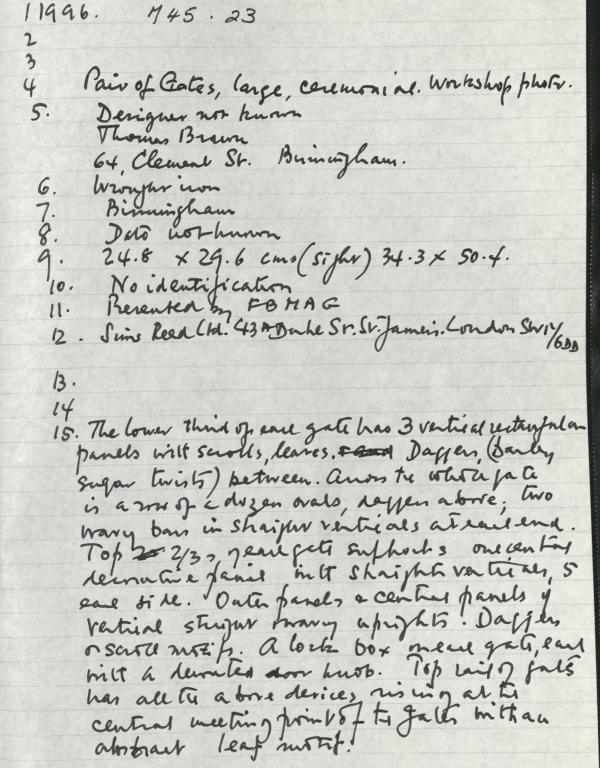 1 1996. M45.23
2
3
4 Pair of Gates, large, ceremonial. Workshop photo.
5. Designer not known
Thomas Brown
64, Clement St. Birmingham.
6. Wrought iron
7. Birmingham
8. Date not known
9. 24.8 x 29.6 cms (sight) 34.3 x 50.4.
10. No identification
11. Presented by FBMAG
12. Sims Reed Ltd. 43A Duke St. St. James's. London SW1Y/6DD
13.
14
15. The lower third of each gate has 3 vertical rectangular
panels with scrolls, leaves, Daggers, (Barley
sugar twists) between. Across the whole gate
is a row of a dozen ovals, daggers above; two
wavy bars in straight verticals at each end.
Top 2/3, of each gate supports one central
decorative panel with straight verticals, 5
each side. Outer panels & central panels of
vertical straight wavy uprights. Daggers
or scroll motifs. A lock box on each gate, each
with a decorated door knob. Top rail of gates
has all the above devices, rising at the
central meeting point of the gates with an
abstract leaf motif.